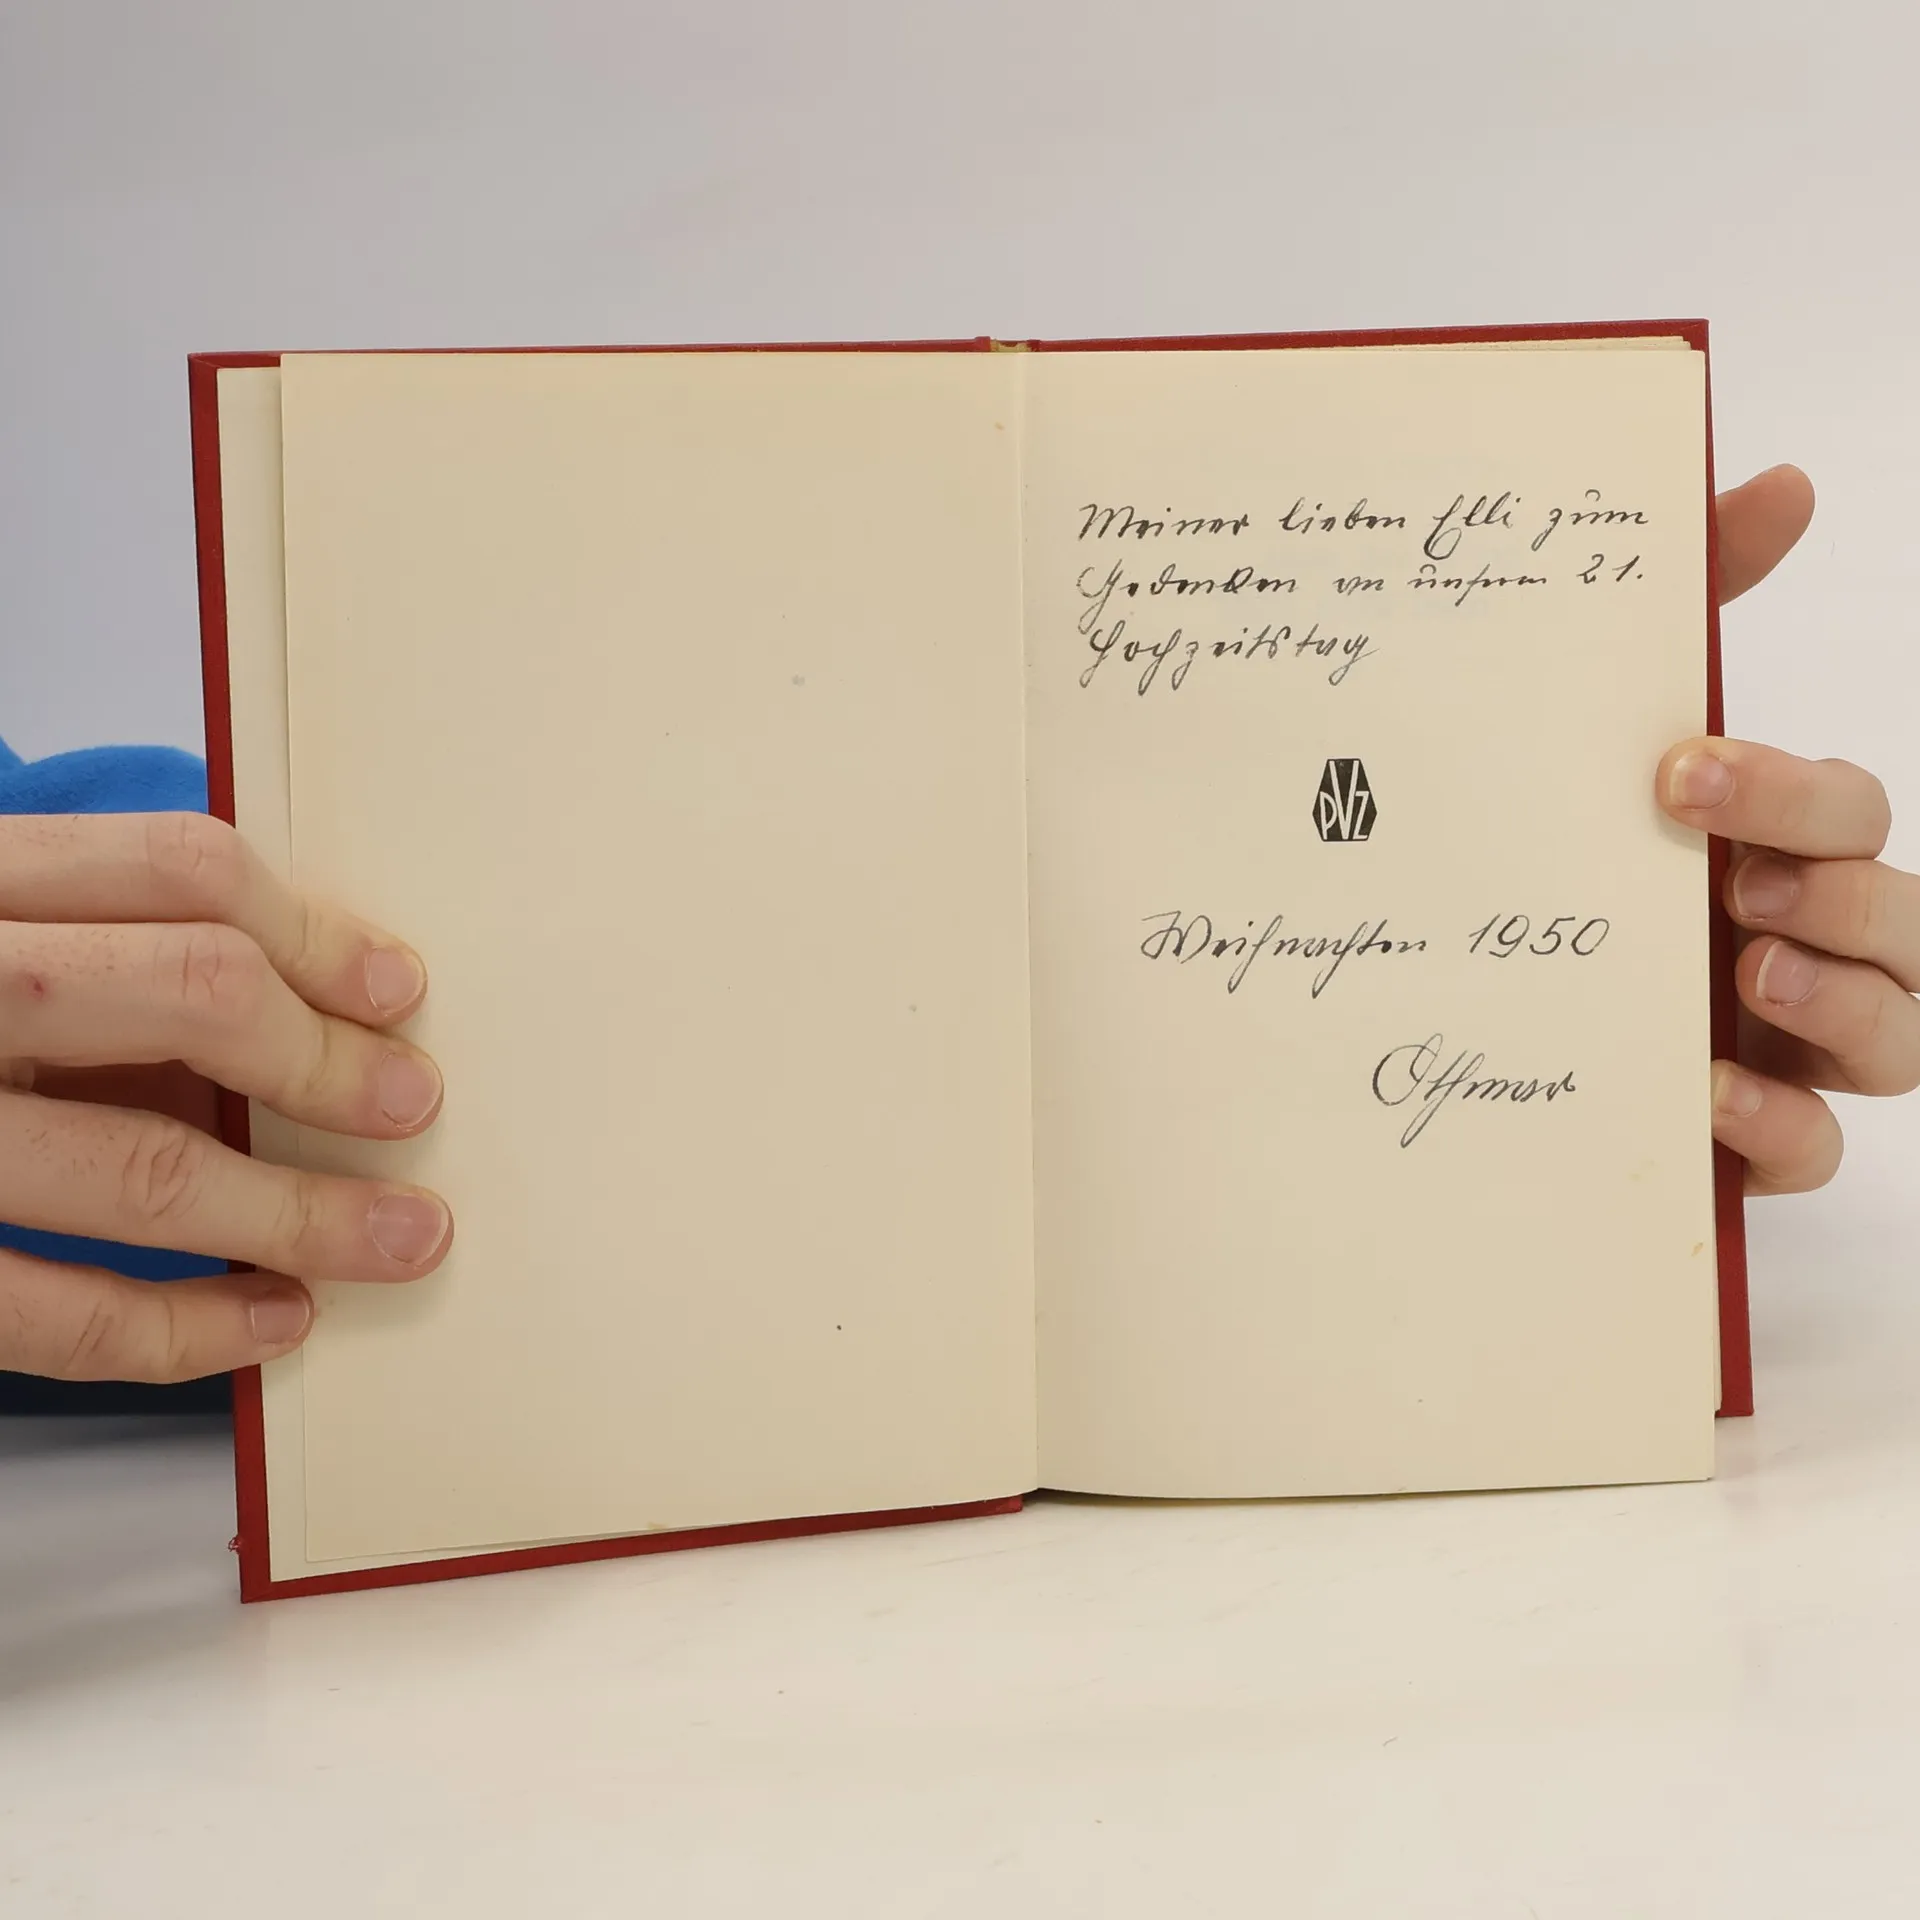 Meiner lieben Elli zum
Gedenken an unsern 21.
Hochzeitstag
PVZ
Weihnachten 1950
Othmar